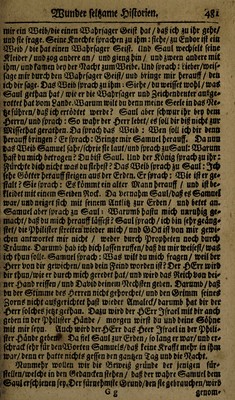 Wunder seltzame Historien. 481
mir ein Weib/die einen Wahrsager Geist hat/daß ich zu ihr gehe/
und sie frage. Seine Knechte sprachen zu ihm: siehe/zu Endor ist ein
Weib/die hat einen Wahrsager Geist. Und Saul wechselt seine
Kleider/und zog andere an/und gieng hin/und zween andere mit
ihm/und kamen bey der Nacht zum Weibe. Und sprach: lieber/weis-
sage mir durch den Wahrsager Geist/und bringe mir herauff/den
ich dir sage. Das Weib sprach zu ihm: Siehe/du weissest wohl/was
Saul gethan hat/wie er die Wahrsager und Zeichendeuter ausge-
rottet hat vom Lande. Warum wilt du denn meine Seele in das Ne-
tze führen/daß ich ertödtet werde? Saul aber schwur ihr bey dem
Herrn/und sprach: So wahr der Herr lebet/es sol dir diß nicht zur
Missethat gerathen. Da sprach das Weib: Wen soll ich dir denn
herauff bringen? Er sprach: Bringe mir Samuel herauff. Da nun
das Weib Samuel sahe/schrie sie laut/und sprach zu Saul: Warum
hast du mich betrogen? Du bist Saul. Und der König sprach zu ihr:
Fürchte dich nicht was du siehest? Das Weib sprach zu Saul: Ich
sehe Götter herauff steigen aus der Erden. Er sprach: Wie ist er ge-
stalt? Sie sprach: Es kommt ein alter Mann herauff/und ist be-
kleidet mit einem Seiden Rock. Da vernahm Saul/daß es Samuel
war/und neiget sich mit seinem Antlitz zur Erden/und betet an.
Samuel aber sprach zu Saul: Warum hastu mich unruhig ge-
macht/daß du mich herauff lässest? Saul sprach/ich bin sehr geäng-
stet/die Philister streiten wieder mich/und GOtt ist von mir gewi-
chen antwortet mir nicht/weder durch Propheten noch durch
Träume. Darumb hab ich dich lassen ruffen/daß du mir weisest/was
ich thun solle. Samuel sprach: Was wilt du mich fragen/weil der
Herr von dir gewichen/und dein Feind worden ist? Der HErr wird
dir thun/wie er durch mich geredt hat/und wird das Reich von dei-
ner Hand reissen/und David deinem Nechsten geben. Darumb/daß
du der Stimme des Herren nicht gehorchet/und den Grimm seines
Zorns nicht ausgerichtet hast wieder Amalek/darumb hat dir der
Herr solches jetzt gethan. Dazu wird der HErr Israel mit dir auch
geben in der Philister Hände/morgen wirst du und deine Söhne
mit mir seyn. Auch wird der HErr das Heer Israel in der Philister
Hände geben. Da fiel Saul zur Erden/so lang er war/und er-
schrack sehr für den Worten Samuels/daß keine Krafft mehr in ihm
war/denn er hatte nichts gessen den gantzen Tag und die Nacht.
Nunmehr wollen wir die Beweiß gründe der jenigen für-
stellen/welche in den Gedancken stehen/daß der wahre Samuel dem
Saul erschienen sey. Der fürnehmste Grund/den sie gebrauchen/wird
G g genom-